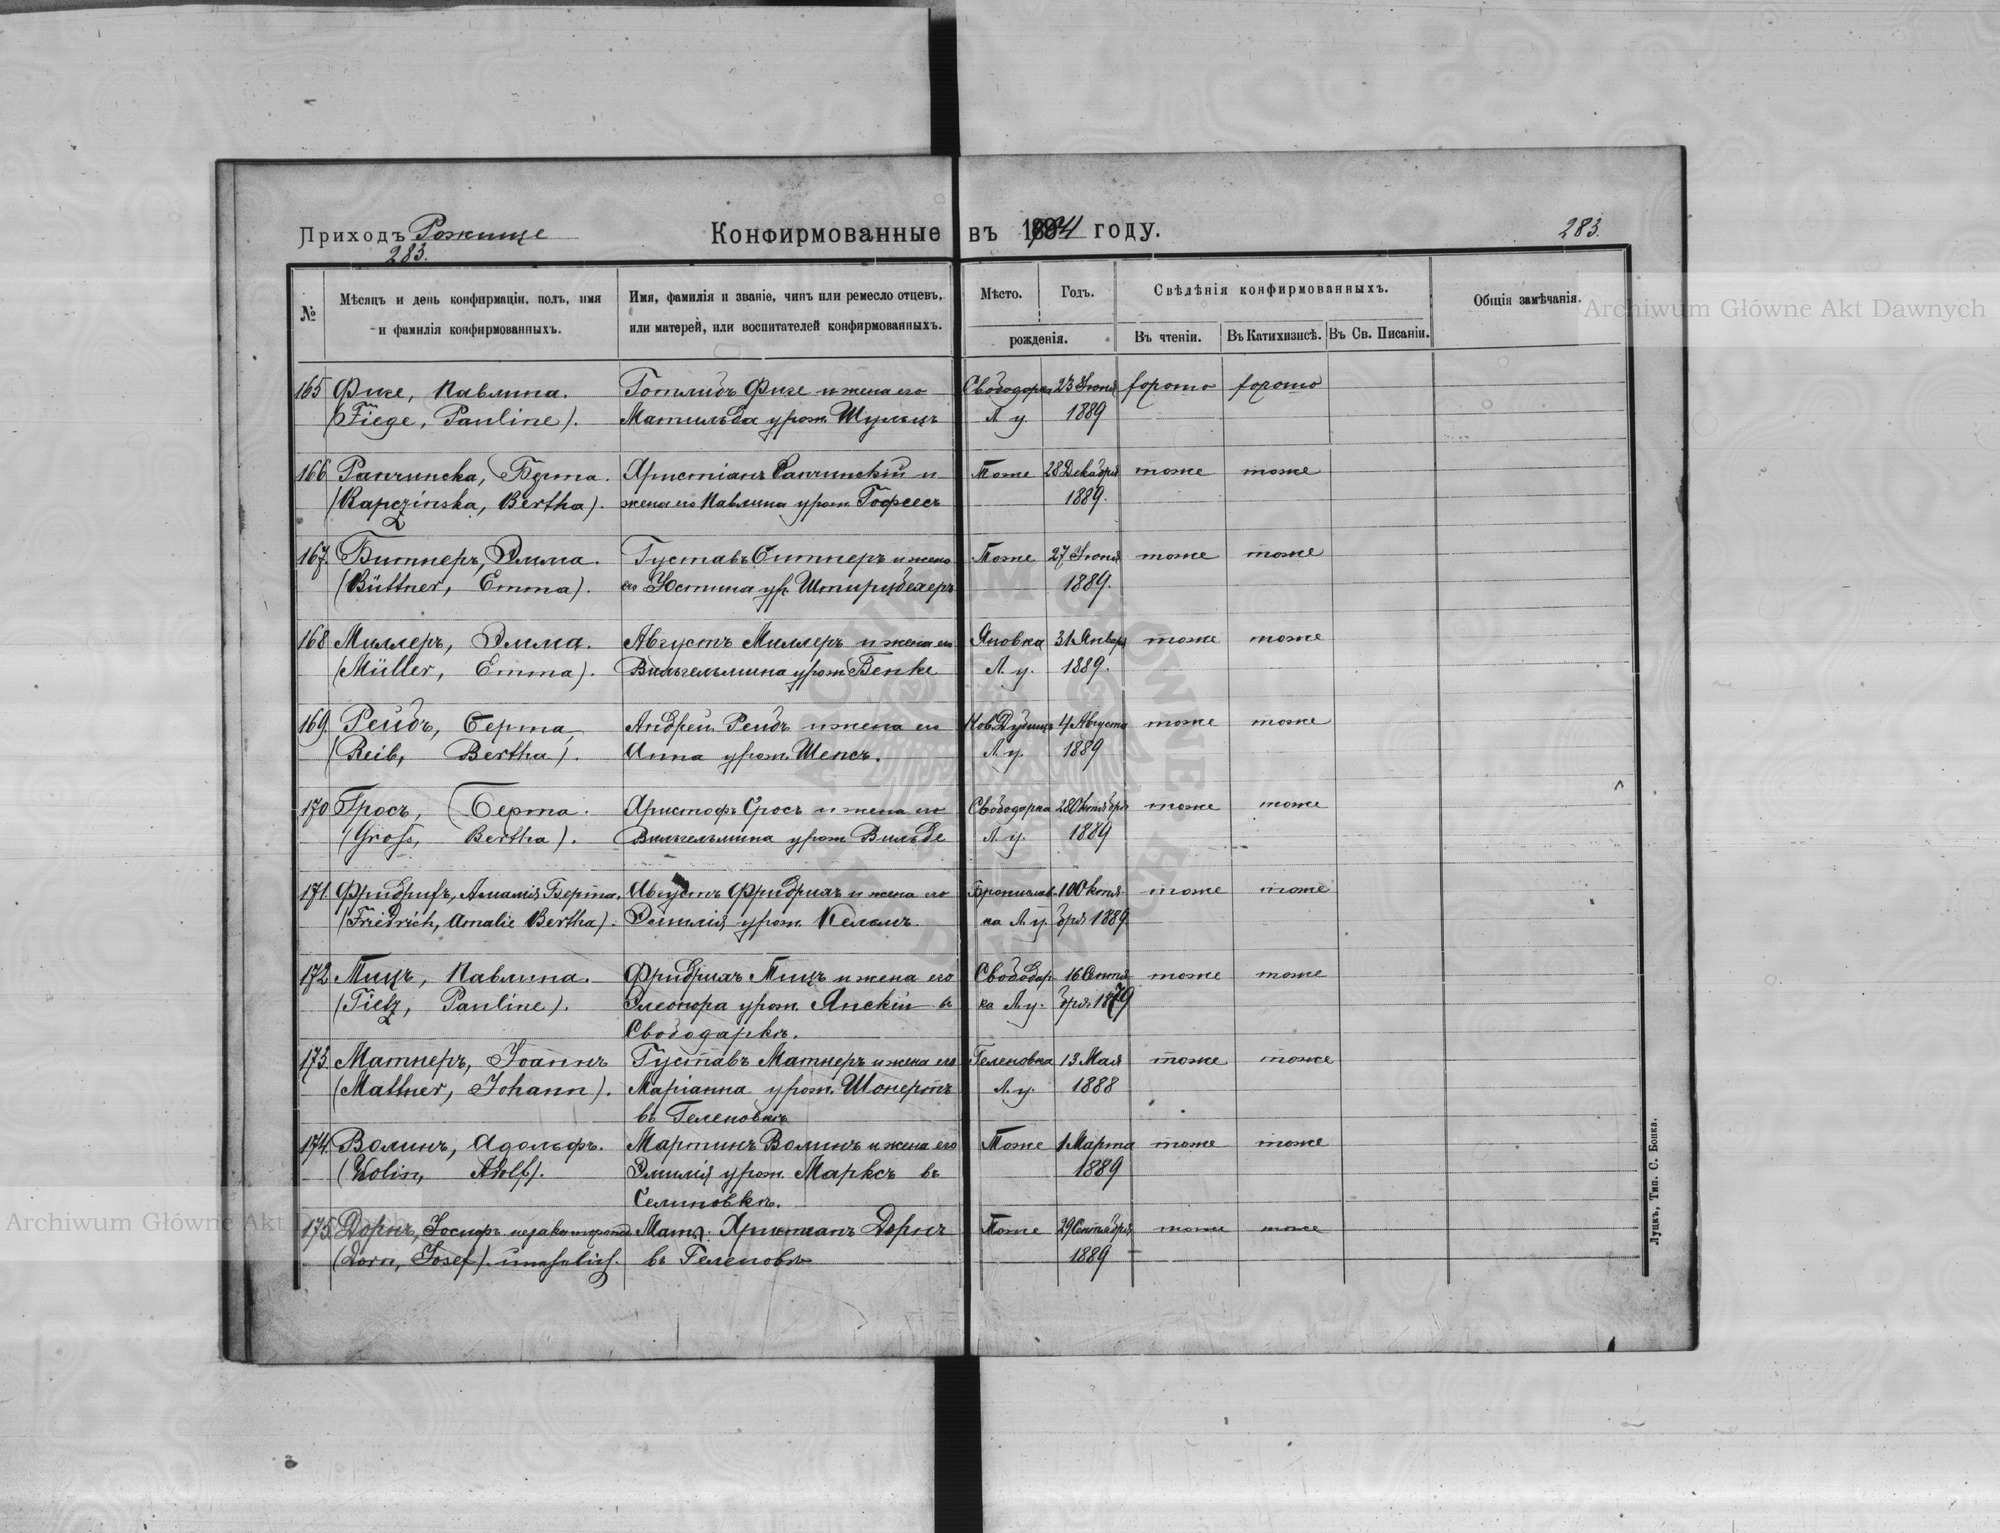 Приходъ Рожище
283.
Конфирмованные въ 1904 году.
283.
№
Мѣсяцъ и день конфирмаціи, полъ, имя
и фамилія конфирмованныхъ.
Имя, фамилія и званіе, чинъ или ремесло отцевъ,
или матерей, или воспитателей конфирмованныхъ.
Мѣсто.
Годъ.
рожденія.
Свѣдѣнія конфирмованныхъ.
Въ чтеніи.
Въ Катихизисѣ.
Въ Св. Писаніи.
Общія замѣчанія.
Archiwum Główne Akt Dawnych
165 Фиге, Павлина. Готлибъ Фиге и жена его Свободарка 23 Іюня хорошо хорошо
(Fiege, Pauline). Матильда урож. Шульцъ Л. у. 1889
166 Рапчинска, Берта. Христіанъ Рапчинскій и Тоже 28 Декабря тоже тоже
(Rapczinska, Bertha). жена его Павлина урож. Гофесъ 1889.
167. Битнеръ, Эмма. Густавъ Битнеръ и жена Тоже 27 Іюня тоже тоже
(Büttner, Emma). его Юстина ур. 1889.
168 Миллеръ, Эмма. Августъ Миллеръ и жена его Яновка 31 Января тоже тоже
(Müller, Emma). Вильгельмина урож. Венке Л. у. 1889.
169. Рейбъ, Берта, Андрей Рейбъ и жена его 4 Августа тоже тоже
(Reib, Bertha). Анна урож. Шепсъ. Л. у. 1889
170 Гросъ, Берта. Христофъ Гросъ и жена его Свободарка 28 Октября тоже тоже
(Gross, Bertha). Вильгельмина урож. Вильде Л. у. 1889
171. Фридрихъ, Амалія Берта. Августъ Фридрихъ и жена его Брониславка 10 Октя- тоже тоже
(Friedrich, Amalie Bertha). Эмилія урож. Келлмъ Л. у. бря 1889.
172 Тицъ, Павлина. Фридрихъ Тицъ и жена его Свободар- 16 Сентя- тоже тоже
(Tietz, Pauline). Элеонора урож. Янскій в ка Л. у. бря 1879
Свободаркѣ.
173. Матнеръ, Іоаннъ Густавъ Матнеръ и жена его Геленовка 13 Мая тоже тоже
(Mattner, Johann). Маріанна урож. Шонертъ Л. у. 1888
въ Геленовкѣ
174 Волинъ, Адольфъ. Мартинъ Волинъ и жена его Тоже 1 Марта тоже тоже
(Wolin, Adolf). Эмилія урож. Марксъ въ 1889
Селиновкѣ.
175. Дорнъ, Іосифъ Мать: Христіанъ Дорнъ Тоже 29 Сентября тоже тоже
(Dorn, Josef). unehelich. въ Геленовкѣ 1889
Archiwum Główne Akt Dawnych
Луцкъ, Тип. С. Бонка.